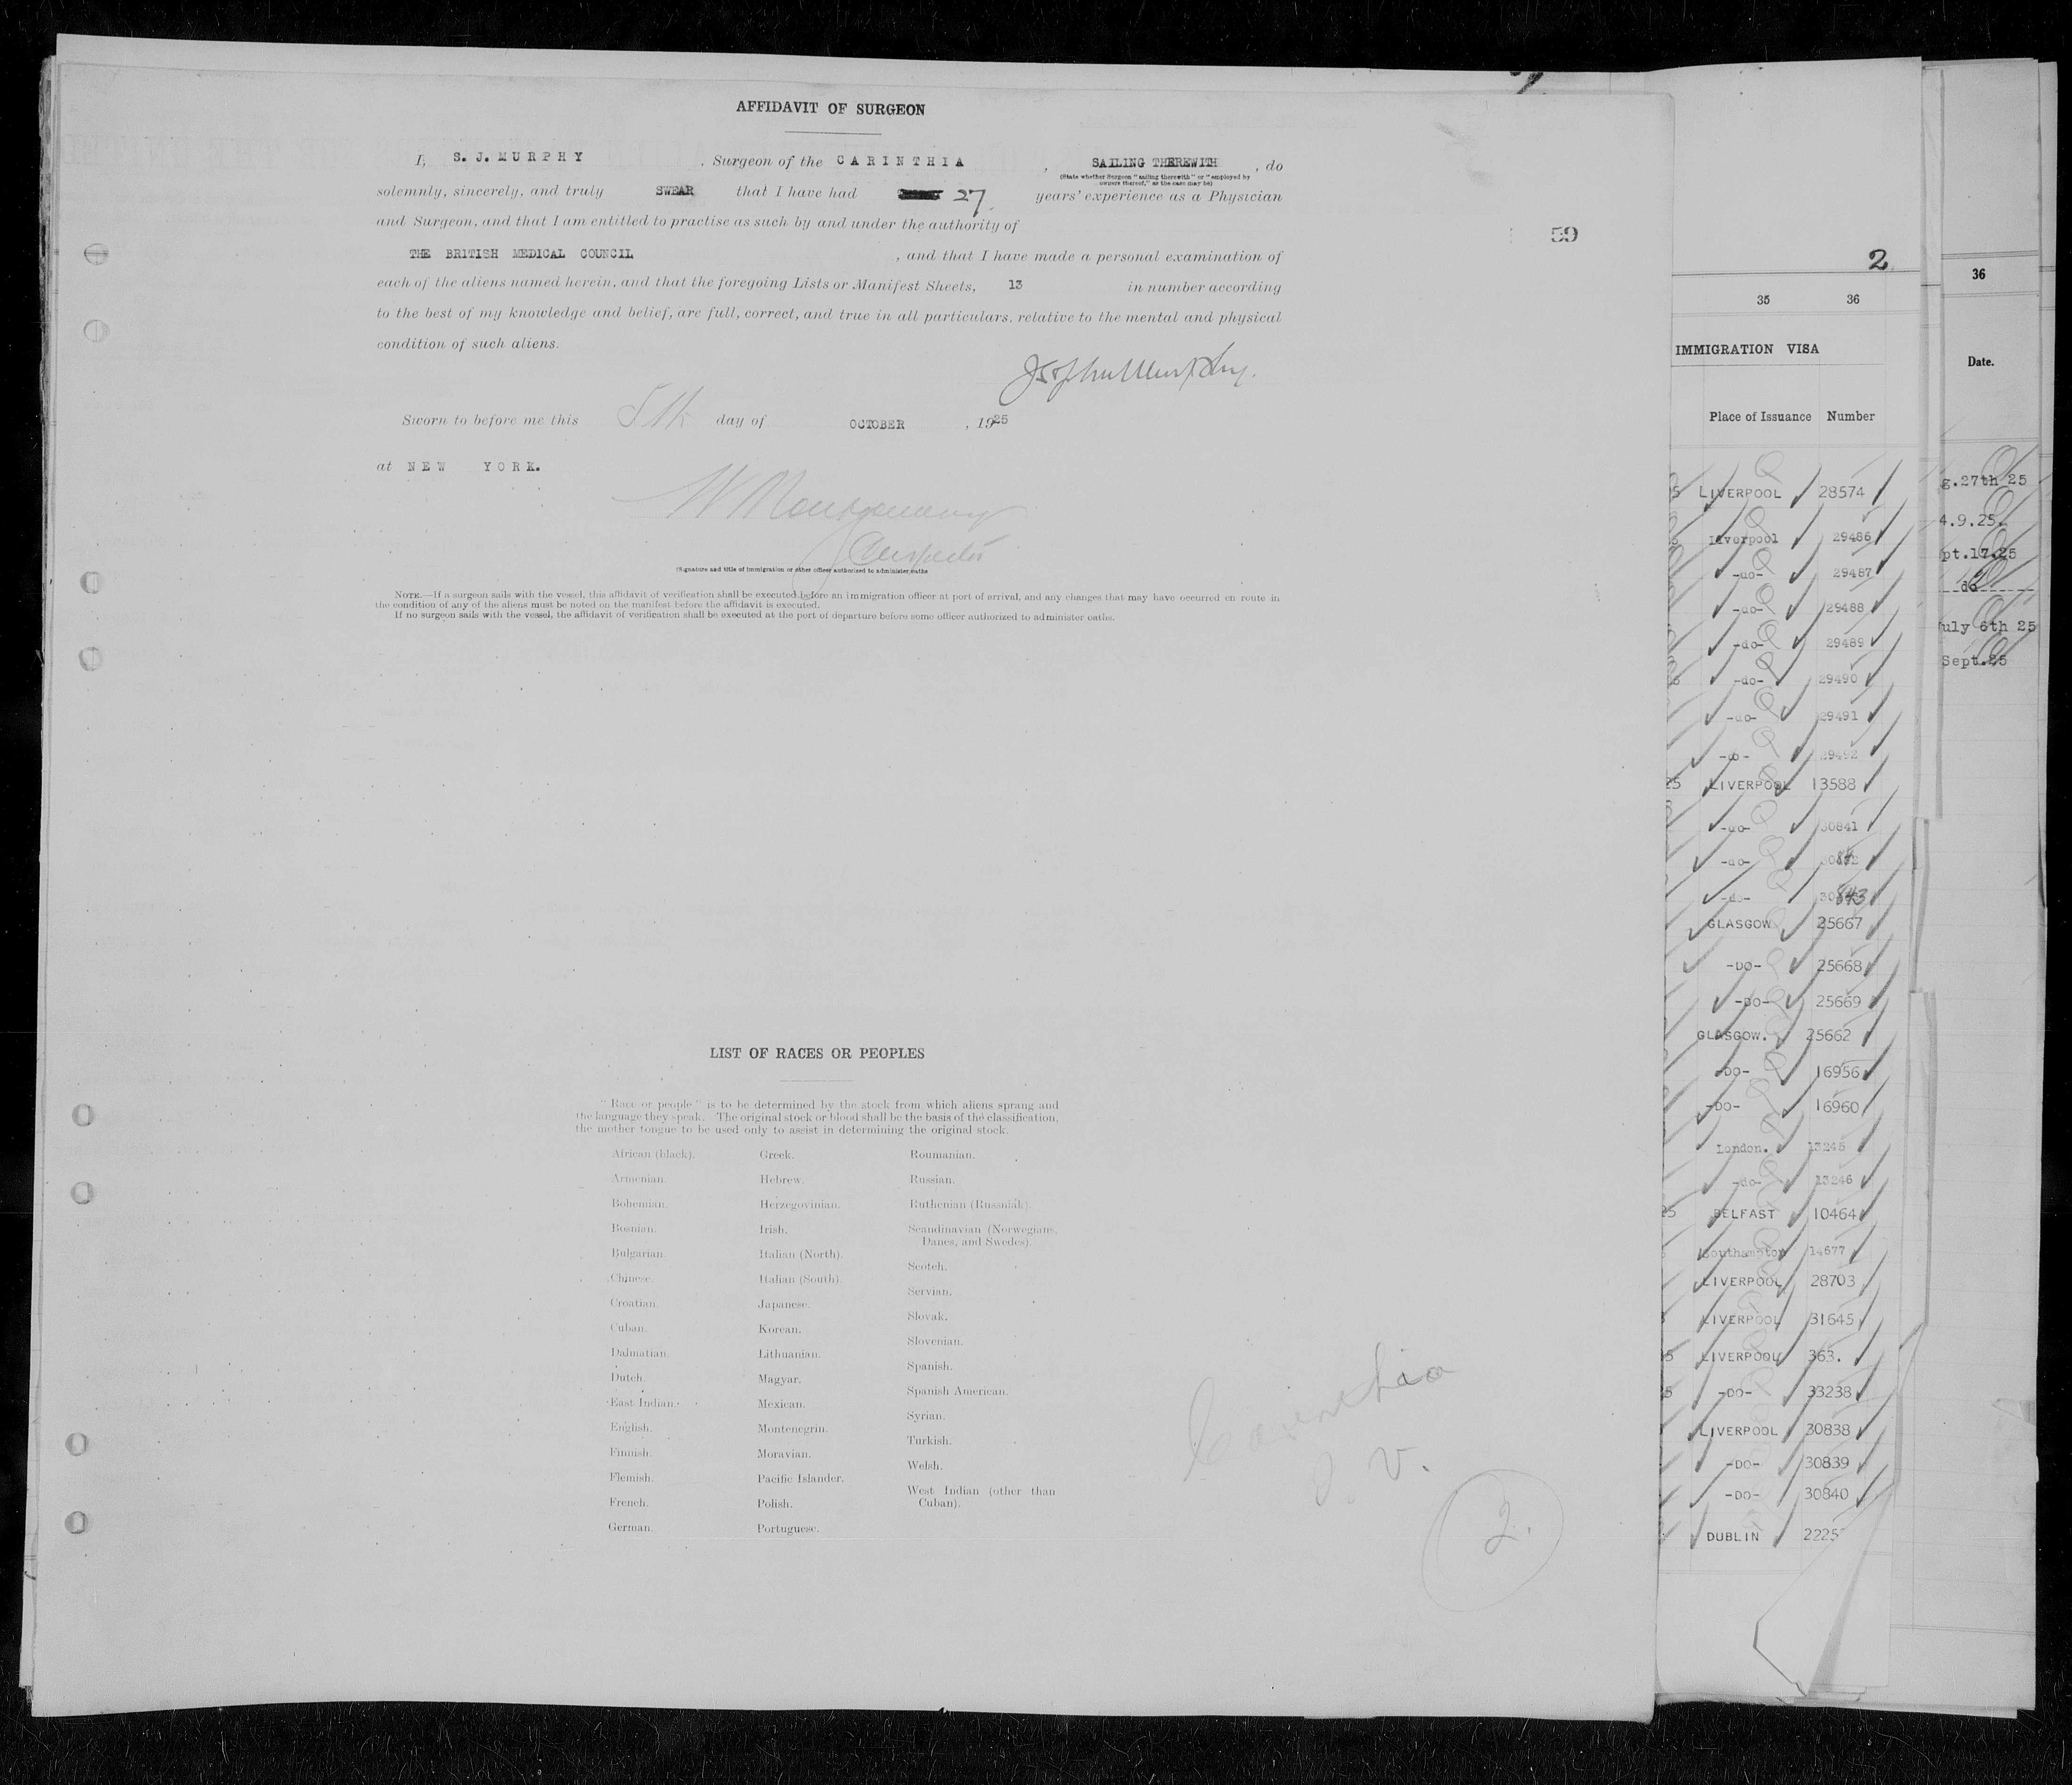 AFFIDAVIT OF SURGEON
I, S. J. MURPHY , Surgeon of the CARINTHIA , SAILING THEREWITH , do
(State whether Surgeon "sailing therewith" or "employed by
owners thereof," as the case may be)
solemnly, sincerely, and truly SWEAR that I have had 27. years' experience as a Physician
and Surgeon, and that I am entitled to practise as such by and under the authority of
THE BRITISH MEDICAL COUNCIL , and that I have made a personal examination of
each of the aliens named herein, and that the foregoing Lists or Manifest Sheets, 13 in number according
to the best of my knowledge and belief, are full, correct, and true in all particulars, relative to the mental and physical
condition of such aliens.
Sworn to before me this 5th day of OCTOBER , 1925
at NEW YORK.
W Montgomery
Inspector
(Signature and title of immigration or other officer authorized to administer oaths
NOTE.—If a surgeon sails with the vessel, this affidavit of verification shall be executed before an immigration officer at port of arrival, and any changes that may have occurred en route in
the condition of any of the aliens must be noted on the manifest before the affidavit is executed.
If no surgeon sails with the vessel, the affidavit of verification shall be executed at the port of departure before some officer authorized to administer oaths.
59
LIST OF RACES OR PEOPLES
"Race or people" is to be determined by the stock from which aliens sprang and
the language they speak. The original stock or blood shall be the basis of the classification,
the mother tongue to be used only to assist in determining the original stock.
African (black).
Armenian.
Bohemian.
Bosnian.
Bulgarian.
Chinese.
Croatian.
Cuban.
Dalmatian.
Dutch.
East Indian.
English.
Finnish.
Flemish.
French.
German.
Greek.
Hebrew.
Herzegovinian.
Irish.
Italian (North).
Italian (South).
Japanese.
Korean.
Lithuanian.
Magyar.
Mexican.
Montenegrin.
Moravian.
Pacific Islander.
Polish.
Portuguese.
Roumanian.
Russian.
Ruthenian (Russniak).
Scandinavian (Norwegians,
Danes, and Swedes).
Scotch.
Servian.
Slovak.
Slovenian.
Spanish.
Spanish American.
Syrian.
Turkish.
Welsh.
West Indian (other than
Cuban).
Carinthia
V.
2.
2
35 36
IMMIGRATION VISA
Place of Issuance Number
LIVERPOOL 28574
Liverpool 29486
-do- 29487
-do- 29488
-do- 29489
-do- 29490
-do- 29491
-do- 29492
LIVERPOOL 13588
-do- 30841
-do-
-do- 30843
GLASGOW 25667
-DO- 25668
-DO- 25669
GLASGOW. 25662
-DO- 16956
-DO- 16960
London. 13245
-do- 13246
BELFAST 10464
Southampton 14677
LIVERPOOL 28703
LIVERPOOL 31645
LIVERPOOL 363.
-DO- 33238
LIVERPOOL 30838
-DO- 30839
-DO- 30840
DUBLIN 2225
36
Date.
g.27th 25
4.9.25.
pt.17.25
do
uly 6th 25
Sept.25